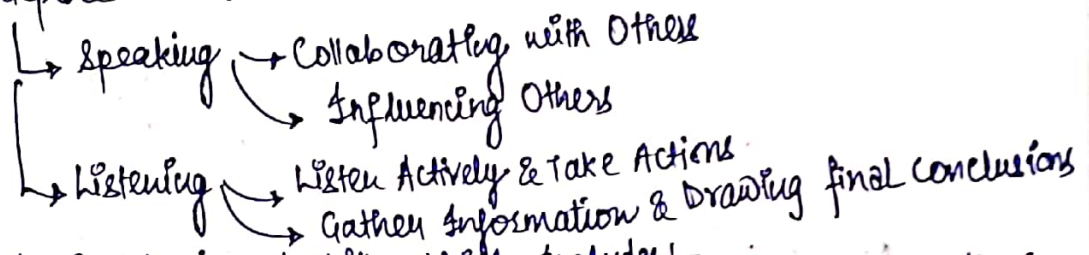 Speaking → Collaborating with Others
→ Influencing Others
Listening → Listen Actively & Take Actions.
→ Gather Information & Drawing final conclusions